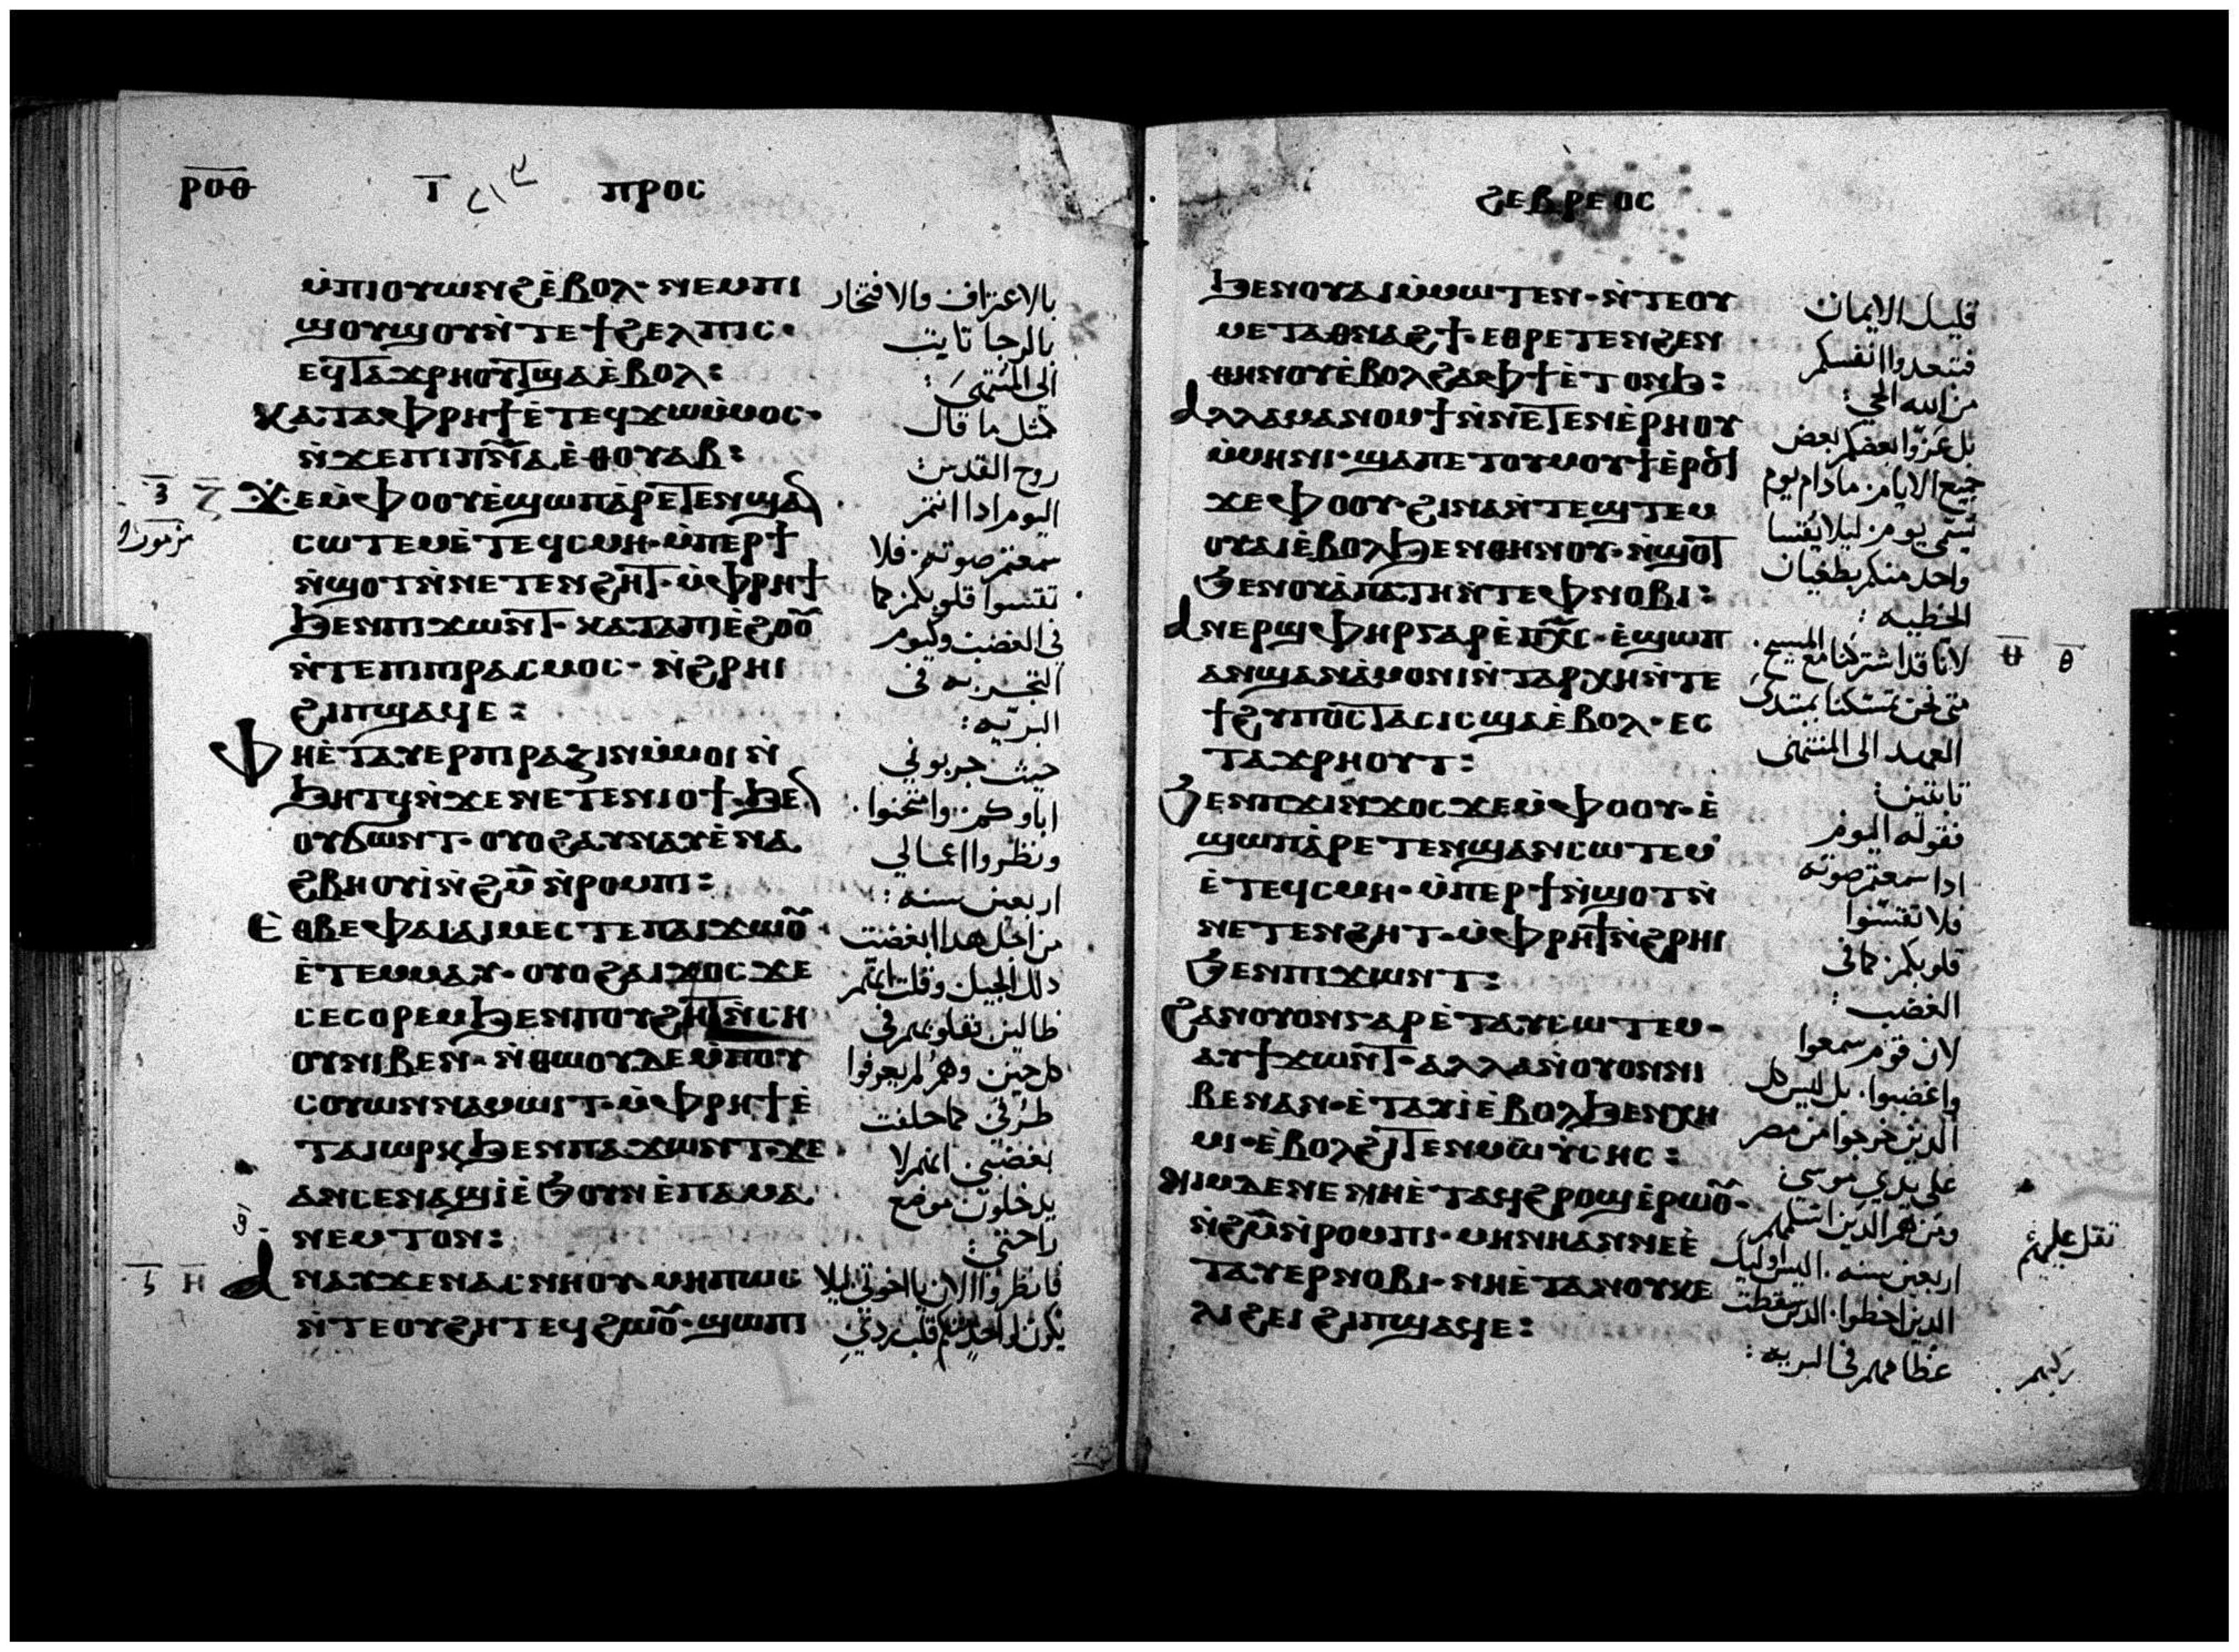 ⲣⲟⲑ
ⲡⲣⲟⲥ
ⲙ̀ⲡⲓⲟⲩⲱⲛϩⲉ̀ⲃⲟⲗ· ⲛⲉⲙⲡⲓ
ϣⲟⲩϣⲟⲩⲛ̀ⲧⲉϯϩⲉⲗⲡⲓⲥ·
ⲉϥⲧⲁϫⲣⲏⲟⲩⲧϣⲁⲉ̀ⲃⲟⲗ:
ⲕⲁⲧⲁⲫⲣⲏϯⲉ̀ⲧⲉϥϫⲱⲙ̀ⲙⲟⲥ·
ⲛ̀ϫⲉⲡⲓⲡ̅ⲛ̅ⲁⲉ̀ⲑⲟⲩⲁⲃ:
ϫⲉⲙ̀ⲫⲟⲟⲩⲉ̀ϣⲱⲡⲁ̀ⲣⲉⲧⲉⲛϣⲁⲛ
ⲥⲱⲧⲉⲙⲉ̀ⲧⲉϥⲥⲙⲏ· ⲙ̀ⲡⲉⲣϯ
ⲛ̀ϣⲟⲧⲛ̀ⲛⲉⲧⲉⲛϩⲏⲧ· ⲙ̀ⲫⲣⲏϯ
ϧⲉⲛⲡⲓϫⲱⲛⲧ· ⲕⲁⲧⲁⲡⲓⲉ̀ϩⲟⲟⲩ
ⲛ̀ⲧⲉⲡⲓⲡⲓⲣⲁⲥⲙⲟⲥ· ⲛ̀ϩⲣⲏⲓ
ϩⲓⲡϣⲁϥⲉ:
ⲫⲏⲉ̀ⲧⲁⲩⲉⲣⲡⲓⲣⲁⲍⲓⲛⲙ̀ⲙⲟⲓⲛ̀
ϧⲏⲧϥⲛ̀ϫⲉⲛⲉⲧⲉⲛⲓⲟϯ· ϧⲉⲛ
ⲟⲩϭⲱⲛⲧ· ⲟⲩⲟϩⲁⲩⲛⲁⲩⲉ̀ⲛⲁ
ϩⲃⲏⲟⲩⲓ̀ⲛ̀ϩ̅ⲙ̅ⲛ̀ⲣⲟⲙⲡⲓ:
ⲉ̀ⲑⲃⲉⲫⲁⲓⲁⲓⲙⲉⲥⲧⲉⲡⲁⲓϫⲱⲟⲩ
ⲉ̀ⲧⲉⲙⲙⲁⲩ· ⲟⲩⲟϩⲁⲓϫⲟⲥϫⲉ
ⲥⲉⲥⲟⲣⲉⲙϧⲉⲛⲡⲟⲩϩⲏⲧⲛ̀ⲥⲏ
ⲟⲩⲛⲓⲃⲉⲛ· ⲛ̀ⲑⲱⲟⲩⲇⲉⲙ̀ⲡⲟⲩ
ⲥⲟⲩⲱⲛⲛⲁⲙⲱⲓⲧ· ⲙ̀ⲫⲣⲏϯⲉ̀
ⲧⲁⲓⲱⲣⲕϧⲉⲛⲡⲁϫⲱⲛⲧ· ϫⲉ
ⲁⲛⲥⲉⲛⲁϣⲓ̀ⲉ̀ϧⲟⲩⲛⲉ̀ⲡⲁⲙⲁ
ⲛⲉⲙⲧⲟⲛ:
ⲁⲛⲁⲩϫⲉⲛⲁⲥⲛⲏⲟⲩ· ⲙⲏⲡⲱⲥ
ⲛ̀ⲧⲉⲟⲩϩⲏⲧⲉϥϩⲱⲟⲩ· ϣⲱⲡⲓ
بالاعتراف والافتخار
بالرجا ثابت
الى المنتهى:
كمثل ما قال
روح القدس:
اليوم ادا انتم
سمعتم صوته فلا
تقسوا قلوبكم كما
فى الغضب وكيوم
التجربه فى
البريه:
حيث جربونى
اباوكم وامتحنوا
ونظروا اعمالي
اربعين سنه:
من اجل هدا ابغضت
دلك الجيل وقلت انهم
ضالين بقلوبهم فى
كل حين وهم لم يعرفوا
طرقى كما حلفت
بغضبى انهم لا
يدخلون موضع
راحتى:
فانظروا الان يا اخوتى ليلا
يكون لواحد منكم قلب ردي
ϩⲉⲃⲣⲉⲟⲥ
ϧⲉⲛⲟⲩⲁⲓⲙ̀ⲙⲱⲧⲉⲛ· ⲛ̀ⲧⲉⲟⲩ
ⲙⲉⲧⲁⲑⲛⲁϩϯ· ⲉⲑⲣⲉⲧⲉⲛϩⲉⲛ
ⲑⲏⲛⲟⲩⲉ̀ⲃⲟⲗϩⲁⲫϯⲉ̀ⲧⲟⲛϧ:
ⲁⲗⲗⲁⲙⲁⲛⲟⲙϯⲛ̀ⲛⲉⲧⲉⲛⲉ̀ⲣⲏⲟⲩ
ⲙ̀ⲙⲏⲛⲓ· ϣⲁⲡⲉⲧⲟⲩⲙⲟⲩϯⲉ̀ⲣⲟϥ
ϫⲉⲫⲟⲟⲩ· ϩⲓⲛⲁⲛ̀ⲧⲉϣⲧⲉⲙ
ⲟⲩⲁⲓⲉ̀ⲃⲟⲗϧⲉⲛⲑⲏⲛⲟⲩ· ⲛ̀ϣⲟⲧ
ϧⲉⲛⲟⲩⲁ̀ⲡⲁⲧⲏⲛ̀ⲧⲉⲫⲛⲟⲃⲓ:
ⲁⲛⲉⲣϣⲫⲏⲣⲅⲁⲣⲉ̀ⲡⲭ̅ⲥ̅· ⲉ̀ϣⲱⲡ
ⲁⲛϣⲁⲛⲁ̀ⲙⲟⲛⲓⲛ̀ⲧⲁⲣⲭⲏⲛ̀ⲧⲉ
ϯϩⲩⲡⲟⲥⲧⲁⲥⲓⲥϣⲁⲉ̀ⲃⲟⲗ· ⲉⲥ
ⲧⲁϫⲣⲏⲟⲩⲧ:
ϧⲉⲛⲡϫⲓⲛϫⲟⲥϫⲉⲙ̀ⲫⲟⲟⲩ· ⲉ̀
ϣⲱⲡⲁ̀ⲣⲉⲧⲉⲛϣⲁⲛⲥⲱⲧⲉⲙ
ⲉ̀ⲧⲉϥⲥⲙⲏ· ⲙ̀ⲡⲉⲣϯⲛ̀ϣⲟⲧⲛ̀
ⲛⲉⲧⲉⲛϩⲏⲧ· ⲙ̀ⲫⲣⲏϯⲛ̀ϩⲣⲏⲓ
ϧⲉⲛⲡⲓϫⲱⲛⲧ:
ϩⲁⲛⲟⲩⲟⲛⲅⲁⲣⲉ̀ⲧⲁⲩⲥⲱⲧⲉⲙ·
ⲁⲩϯϫⲱⲛⲧ· ⲁⲗⲗⲁⲛ̀ⲟⲩⲟⲛⲛⲓ
ⲃⲉⲛⲁⲛ· ⲉ̀ⲧⲁⲩⲓ̀ⲉ̀ⲃⲟⲗϧⲉⲛⲭⲏ
ⲙⲓ· ⲉ̀ⲃⲟⲗϩⲓⲧⲉⲛⲙⲱⲩ̀ⲥⲏⲥ:
ⲛⲓⲙⲇⲉⲛⲉⲛⲏⲉ̀ⲧⲁϥϩⲣⲟϣⲉ̀ⲣⲱⲟⲩ·
ⲛ̀ϩ̅ⲙ̅ⲛ̀ⲣⲟⲙⲡⲓ· ⲙⲏⲛⲏⲁⲛⲛⲉⲉ̀
ⲧⲁⲩⲉⲣⲛⲟⲃⲓ· ⲛⲏⲉ̀ⲧⲁⲛⲟⲩⲕⲉ
ⲗⲓϩⲉⲓϩⲓⲡϣⲁϥⲉ:
قليل الايمان
فتبعدوا انفسكم
من الله الحي:
بل عزوا بعضكم بعض
جميع الايام ما دام يوم
يسمى يوم ليلا يقسا
واحد منكم بطغيان
الخطيه:
لانا قد اشتركنا مع المسيح
متى نحن تمسكنا بمبتدى
العهد الى المنتهى
ثابتين:
فقوله اليوم
ادا سمعتم صوته
فلا تقسوا
قلوبكم كما فى
الغضب:
لان قوم سمعوا
واغضبوا. بل ليس كل
الدين خرجوا من مصر
على يدي موسى
ومن هم الدين
اربعين سنه. اليس اوليك
الدين اخطوا. الدين سقطت
عظامهم فى البريه:
ثقل عليهم